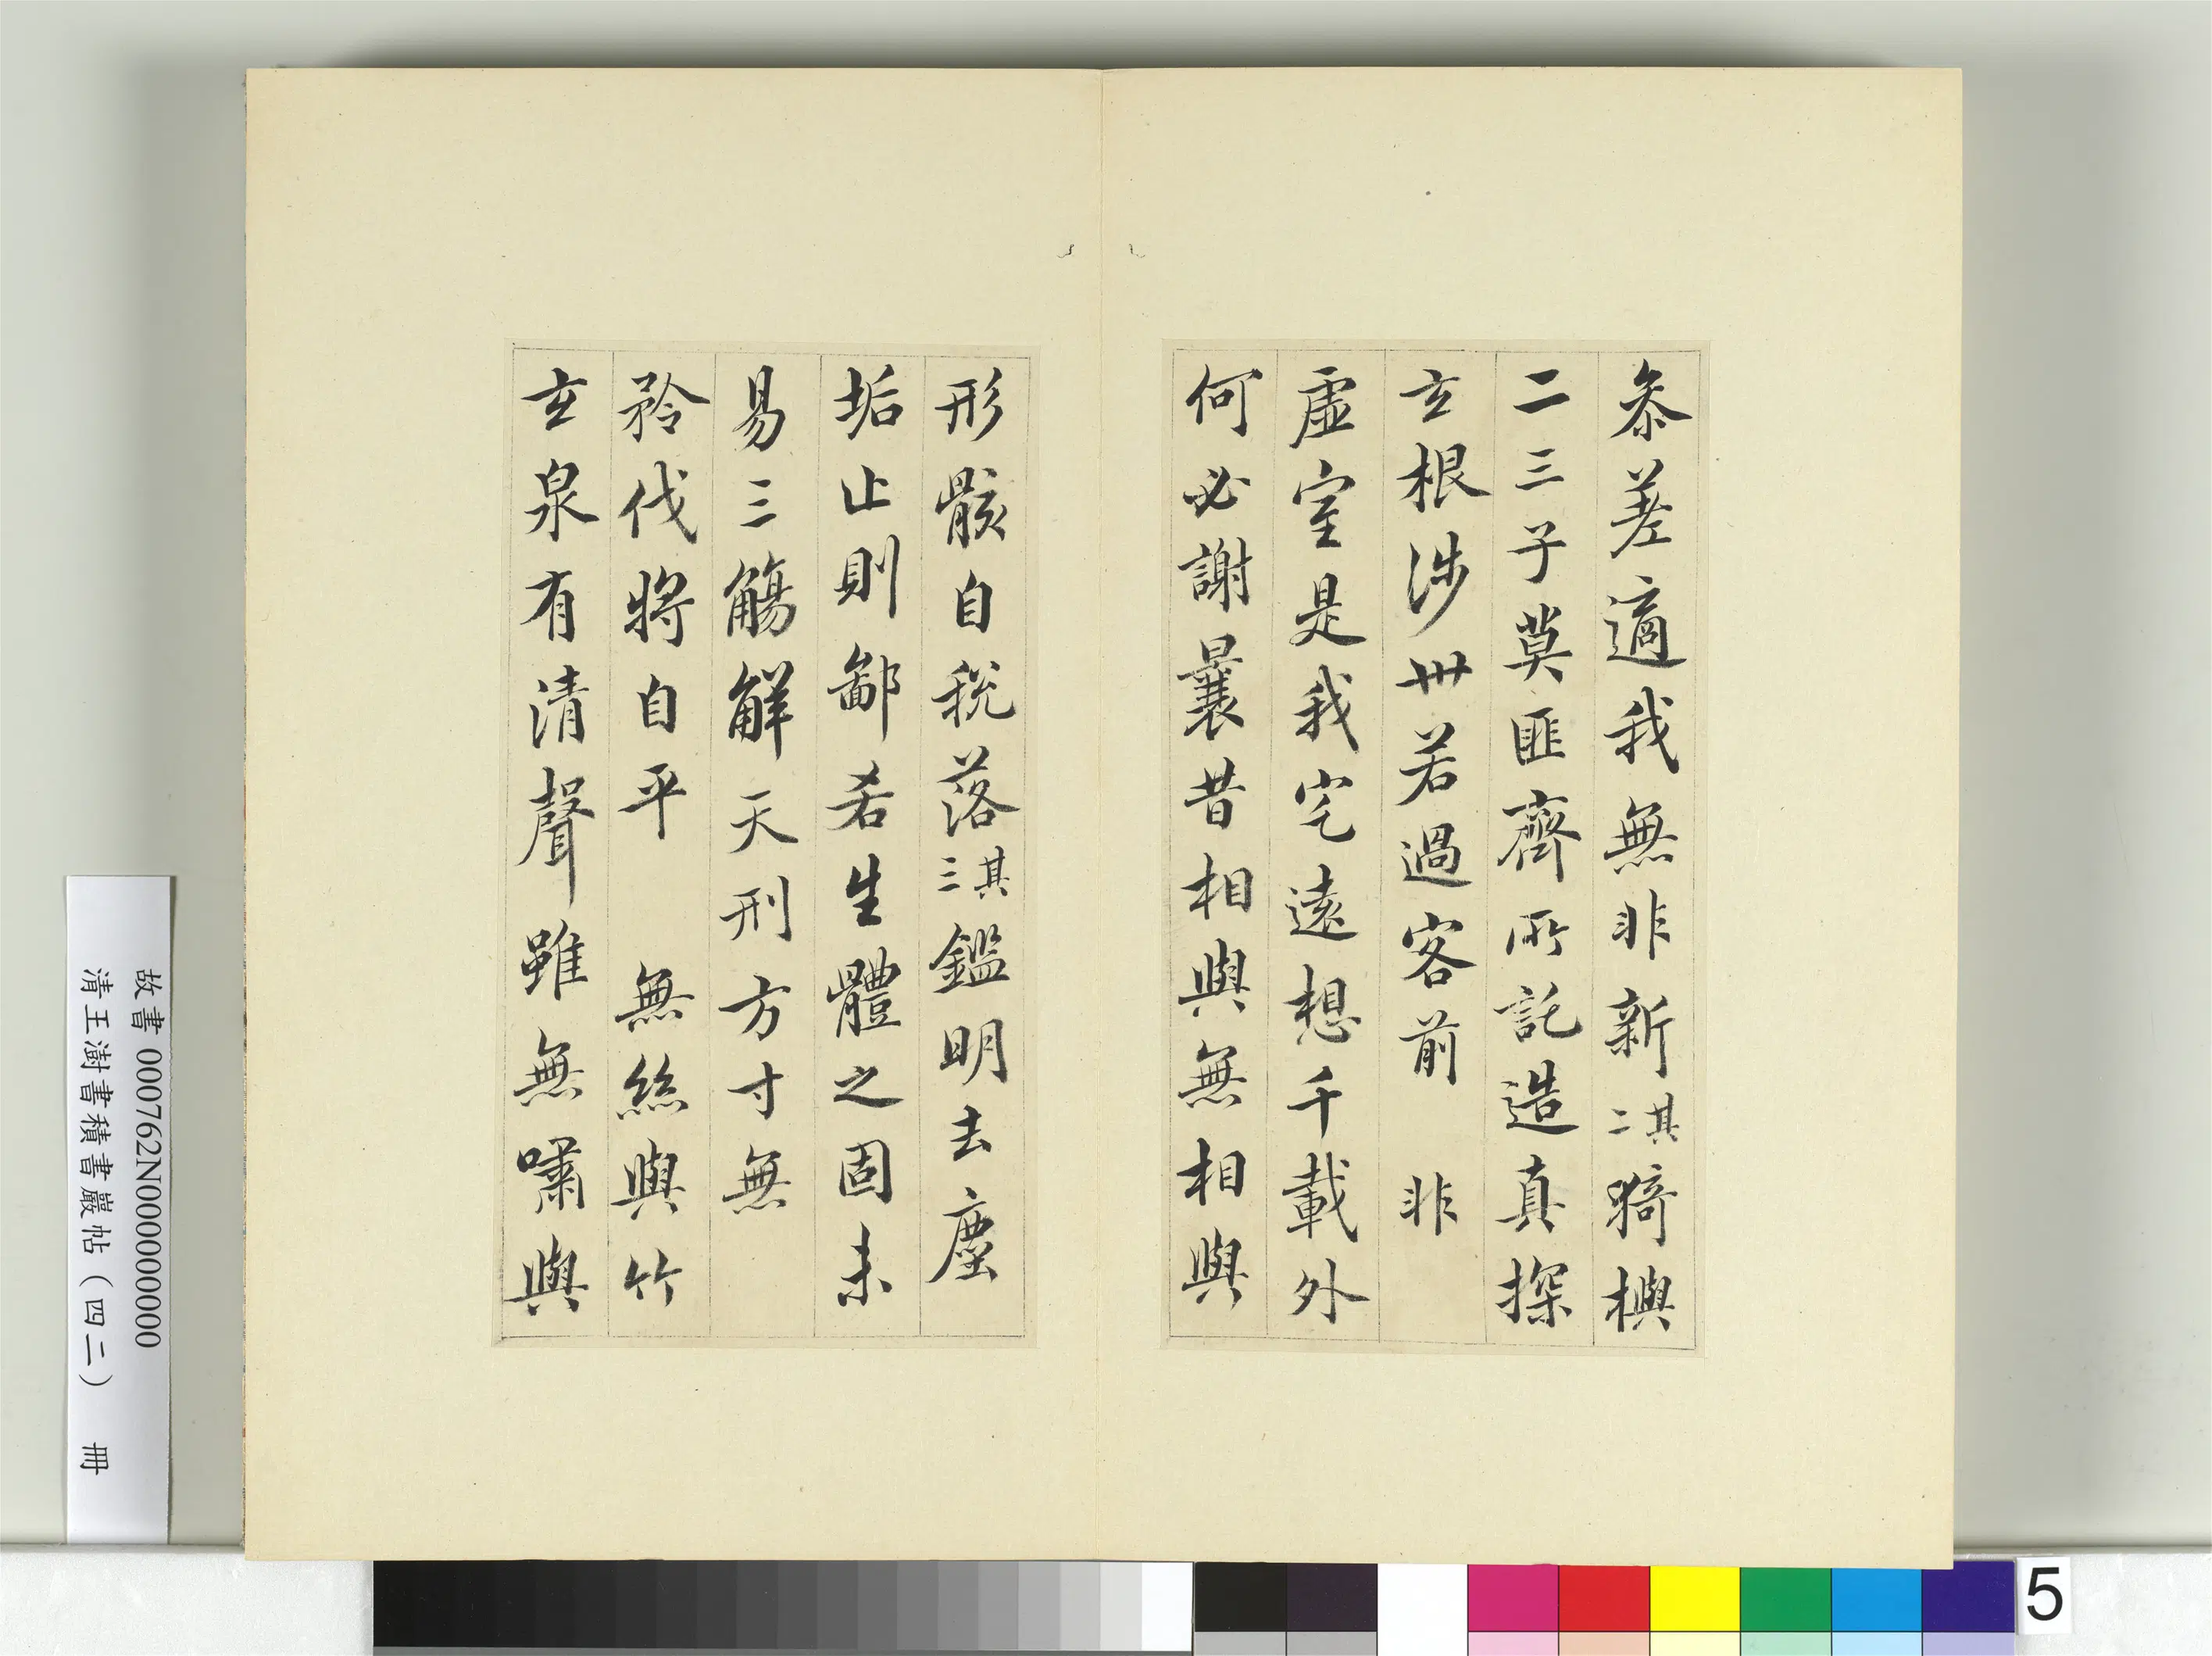 叅差適我無非新其二猗與
二三子莫匪齊所託造真探
玄根涉世若過客前 非
虛室是我宅遠想千載外
何必謝曩昔相與無相與
形骸自稅落其三鑑明去塵
垢止則鄙吝生體之固未
易三觴解天刑方寸無
矜伐將自平 無絲與竹
玄泉有清聲雖無嘯與
故書 000762N000000000
清王澍書積書巖帖（四二） 冊
5